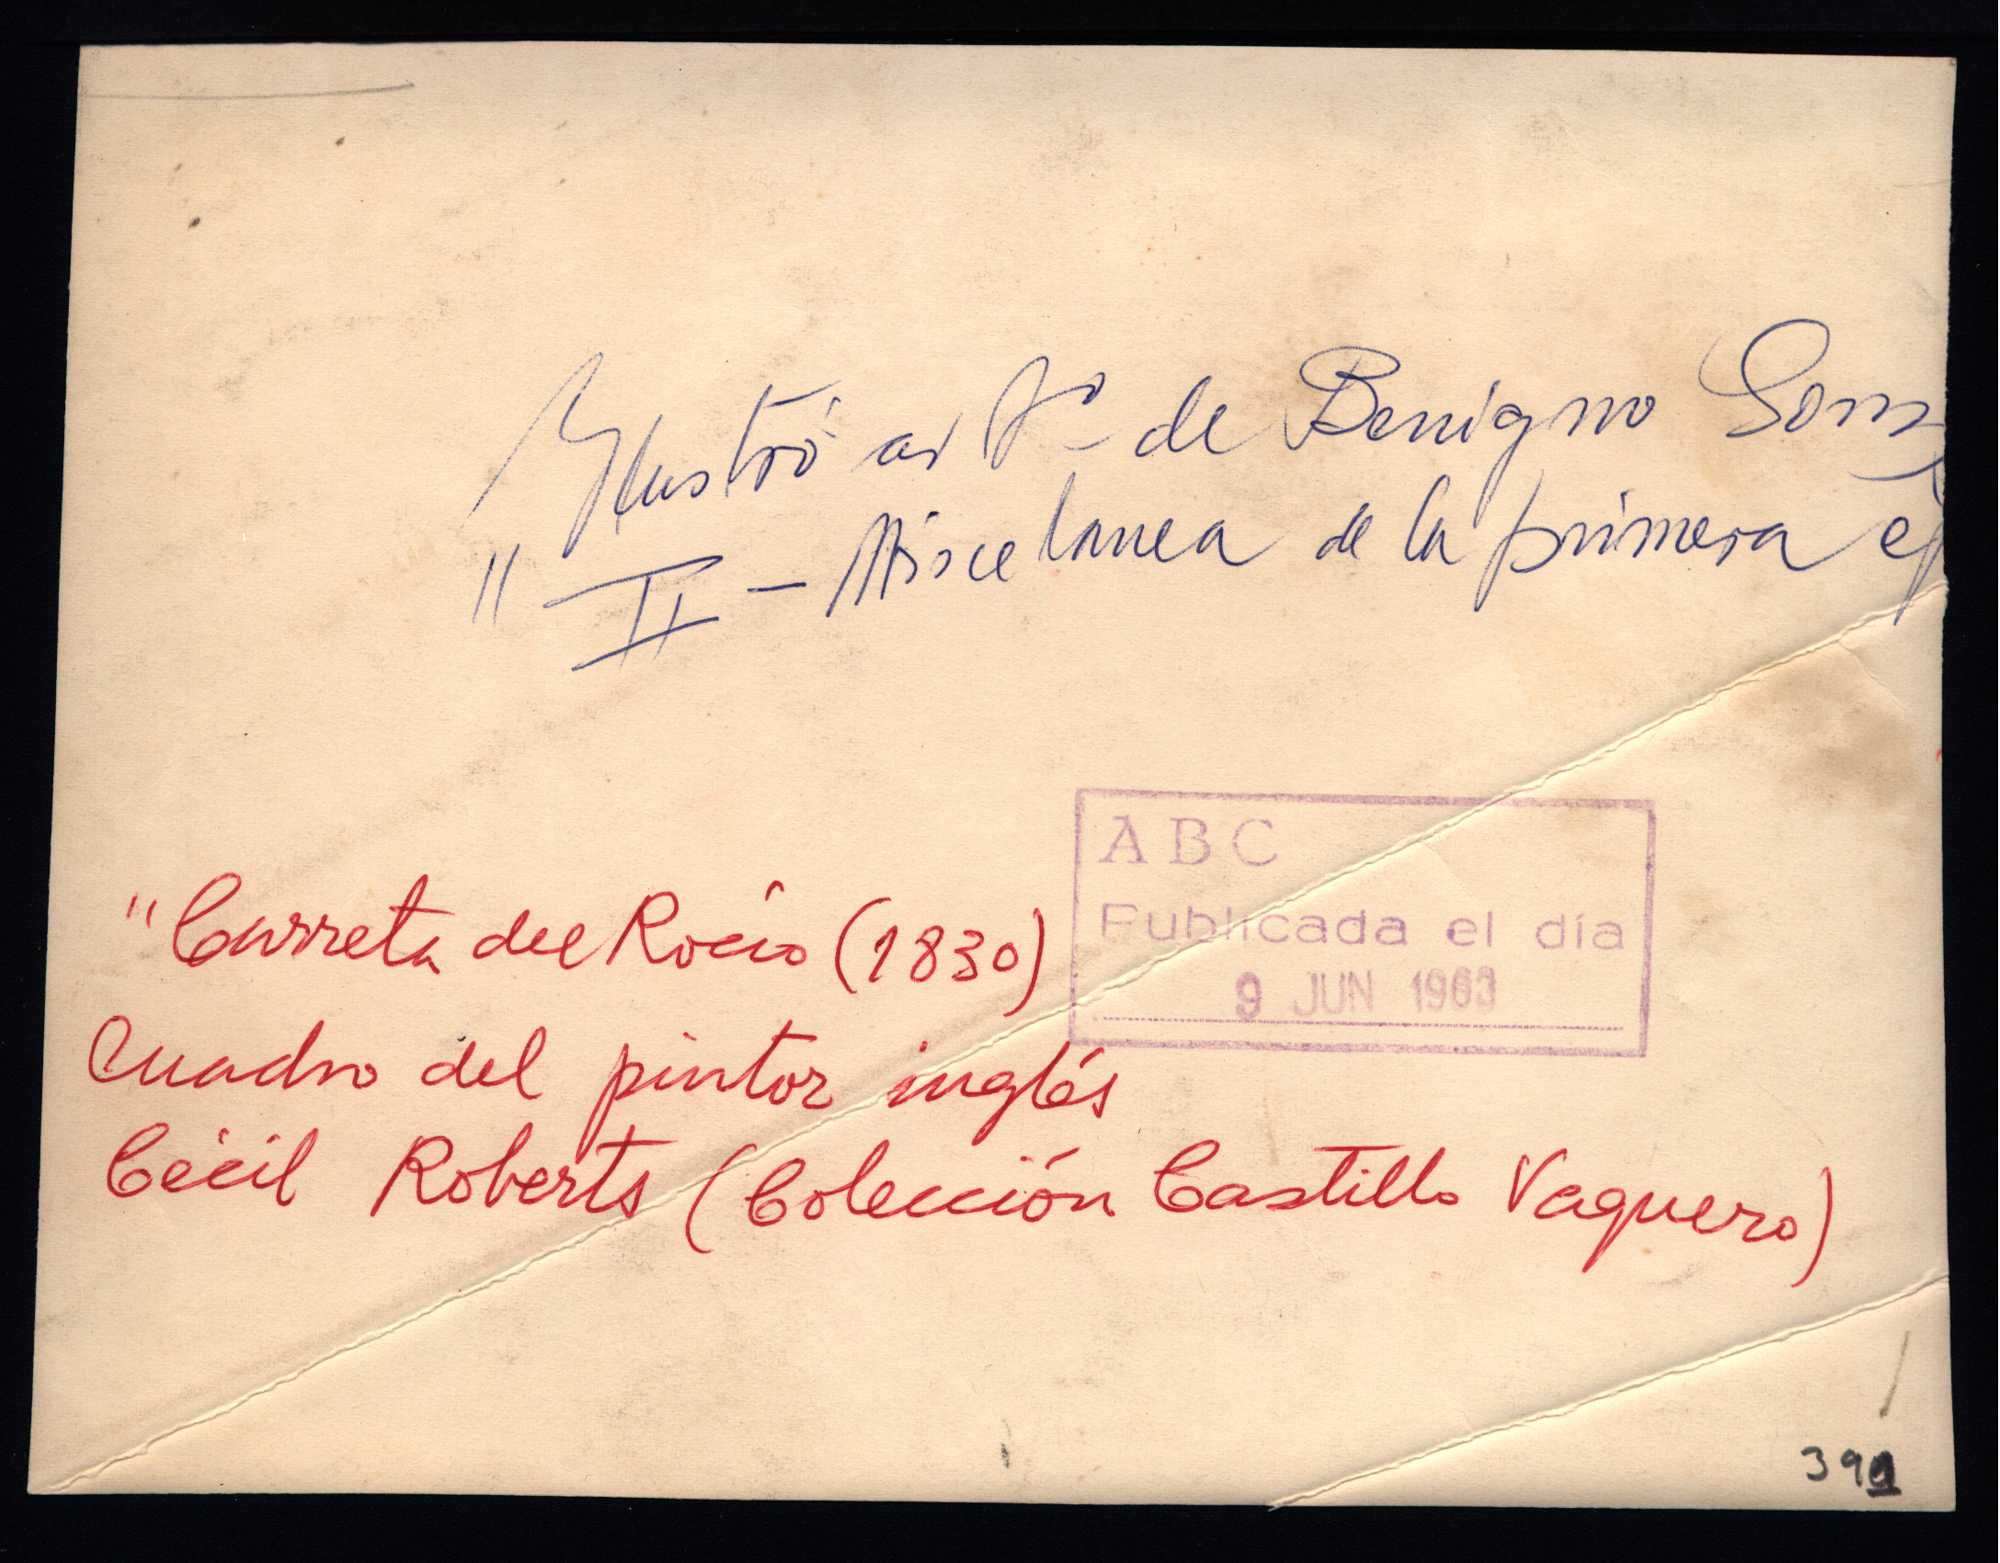 Ylustró art⁰ de Benigno Gonz
" II - Miscelanea de la primera ep
ABC
Publicada el día
9 JUN 1963
"Carreta del Rocío (1830)
Cuadro del pintor inglés
Cécil Roberts (Colección Castillo Vaquero)